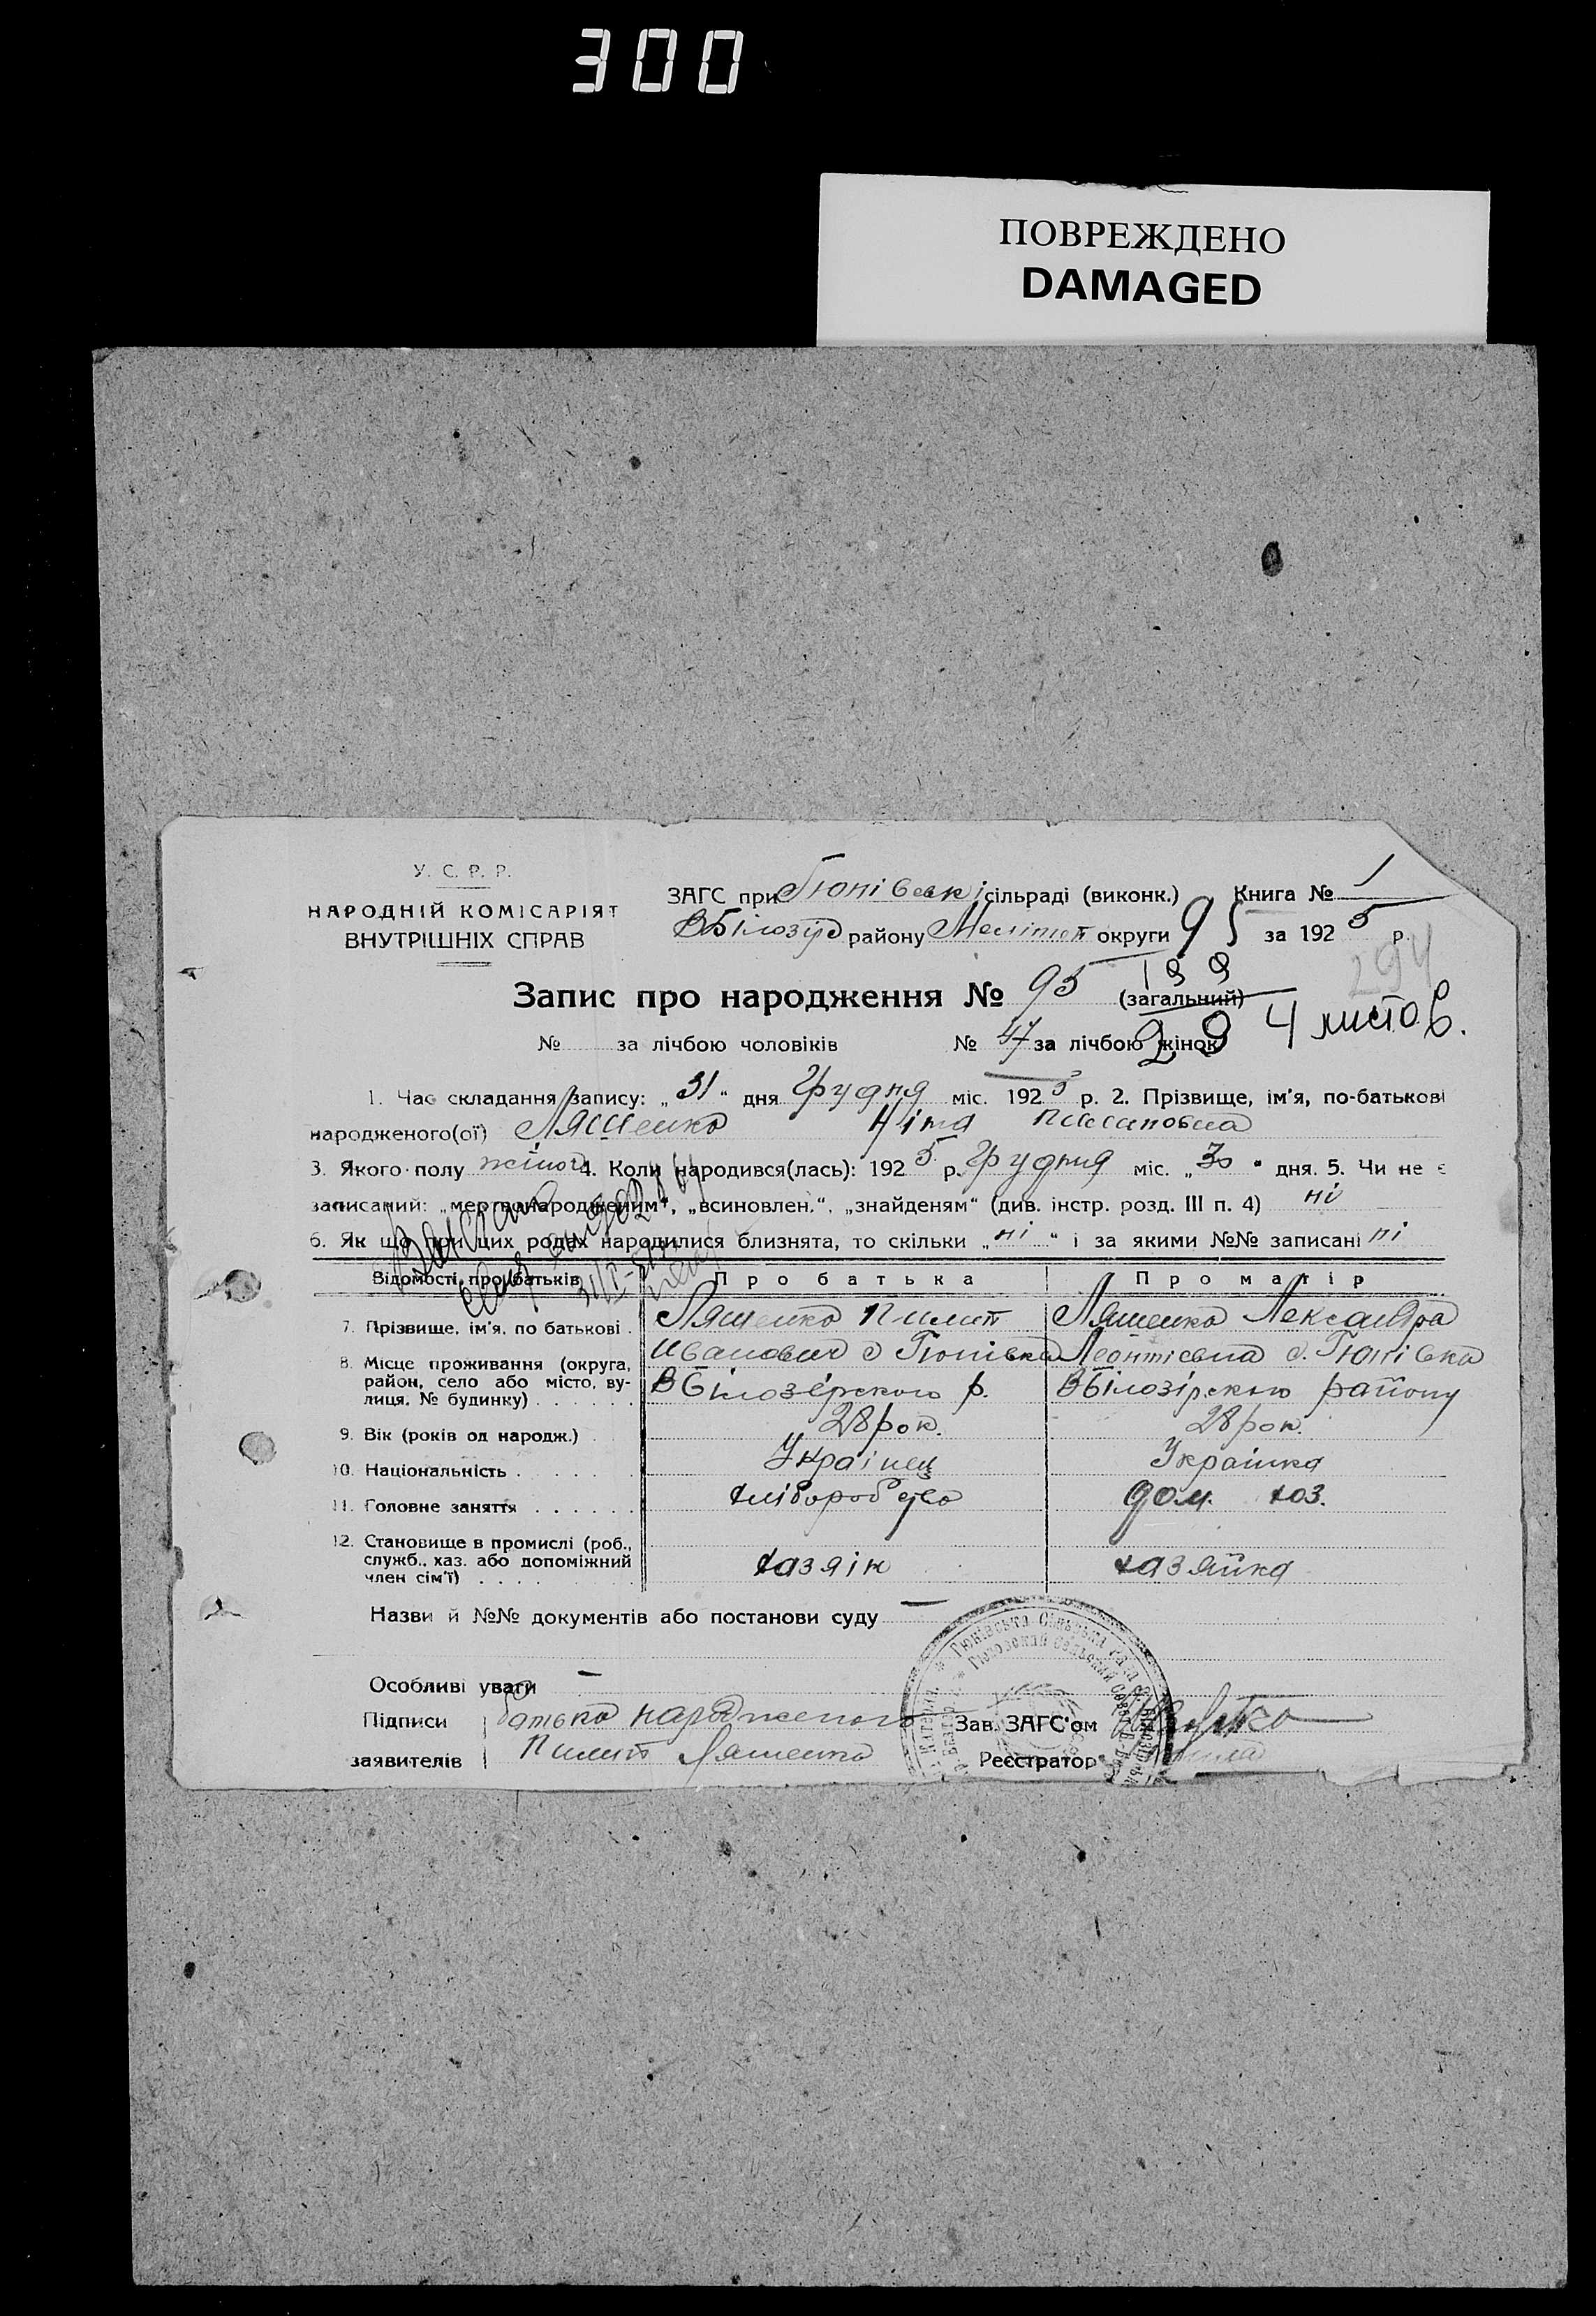 300
ПОВРЕЖДЕНО
DAMAGED
У. С. Р. Р.
НАРОДНІЙ КОМІСАРІЯТ
ВНУТРІШНІХ СПРАВ
ЗАГС при Тюнівській сільраді (виконк.) Книга № 1
ВБілозір району Меліт округи 95 за 1925 р.
294
199
Запис про народження № 95 (загальний)
29 4 листов.
№ за лічбою чоловіків № 47 за лічбою жінок
1. Час складання запису: „31“ дня Грудня міс. 1925 р. 2. Прізвище, ім'я, по-батькові
народженого(ої) Ляшенко Ніна
3. Якого полу жіноч 4. Коли народився(лась): 1925 р. Грудня міс. „30“ дня. 5. Чи не є
записаний: „мертвонародженим“, „всиновлен.“, „знайденям“ (див. інстр. розд. III п. 4) ні
6. Як що при цих родах народилися близнята, то скільки „ні“ і за якими №№ записані ні
Відомості про батьків Про батька Про матір
7. Прізвище, ім'я, по батькові . Ляшенко Пилип Ляшенко Александра
Иванович с Тюнівка Леонтіевна с. Тюнівка
8. Місце проживання (округа,
район, село або місто, ву-
лиця, № будинку) . . . . . . ВБілозерского р. ВБілозірского району
9. Вік (років од народж.) 28 рок. 28 рок.
10. Національність . . . . . Українец Українка
11. Головне заняття . . . . . . хліборобство дом. хоз.
12. Становище в промислі (роб.,
служб., хаз. або допоміжний
член сім'ї) . . . . хазяін хазяйка
Назви й №№ документів або постанови суду —
Особливі уваги —
Підписи батько народженого Зав. ЗАГС'ом
заявителів Пилип Ляшенко Реєстратор
Тюнівська Сільська Рада
Тюновский Сельский Совет